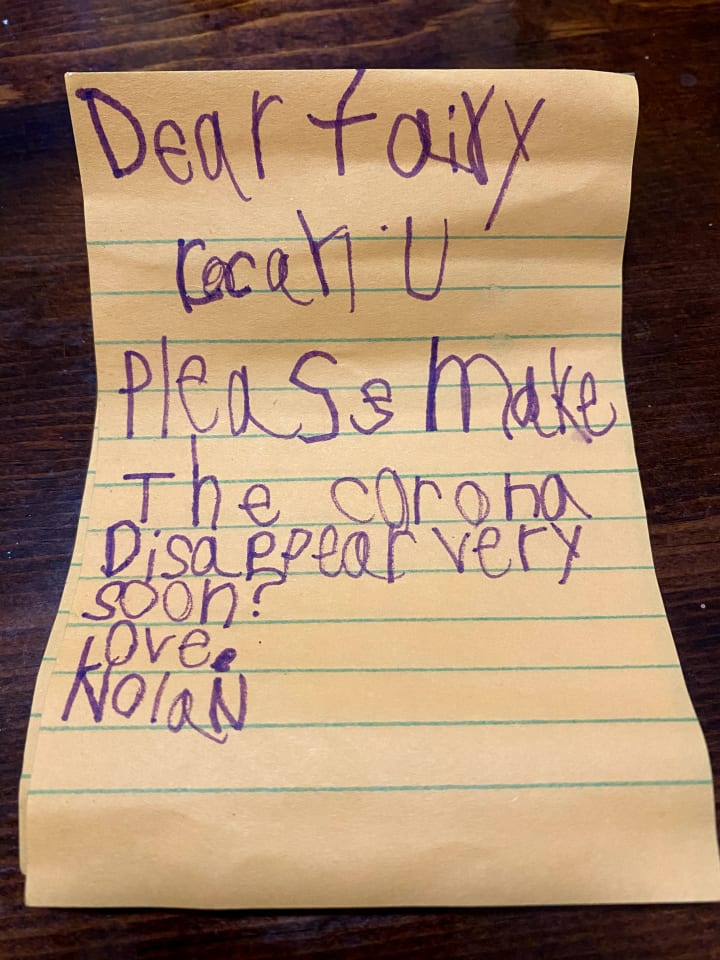 Dear fairy
can U
pleaSe make
The corona
Disappear very
soon?
Love.
NolaN